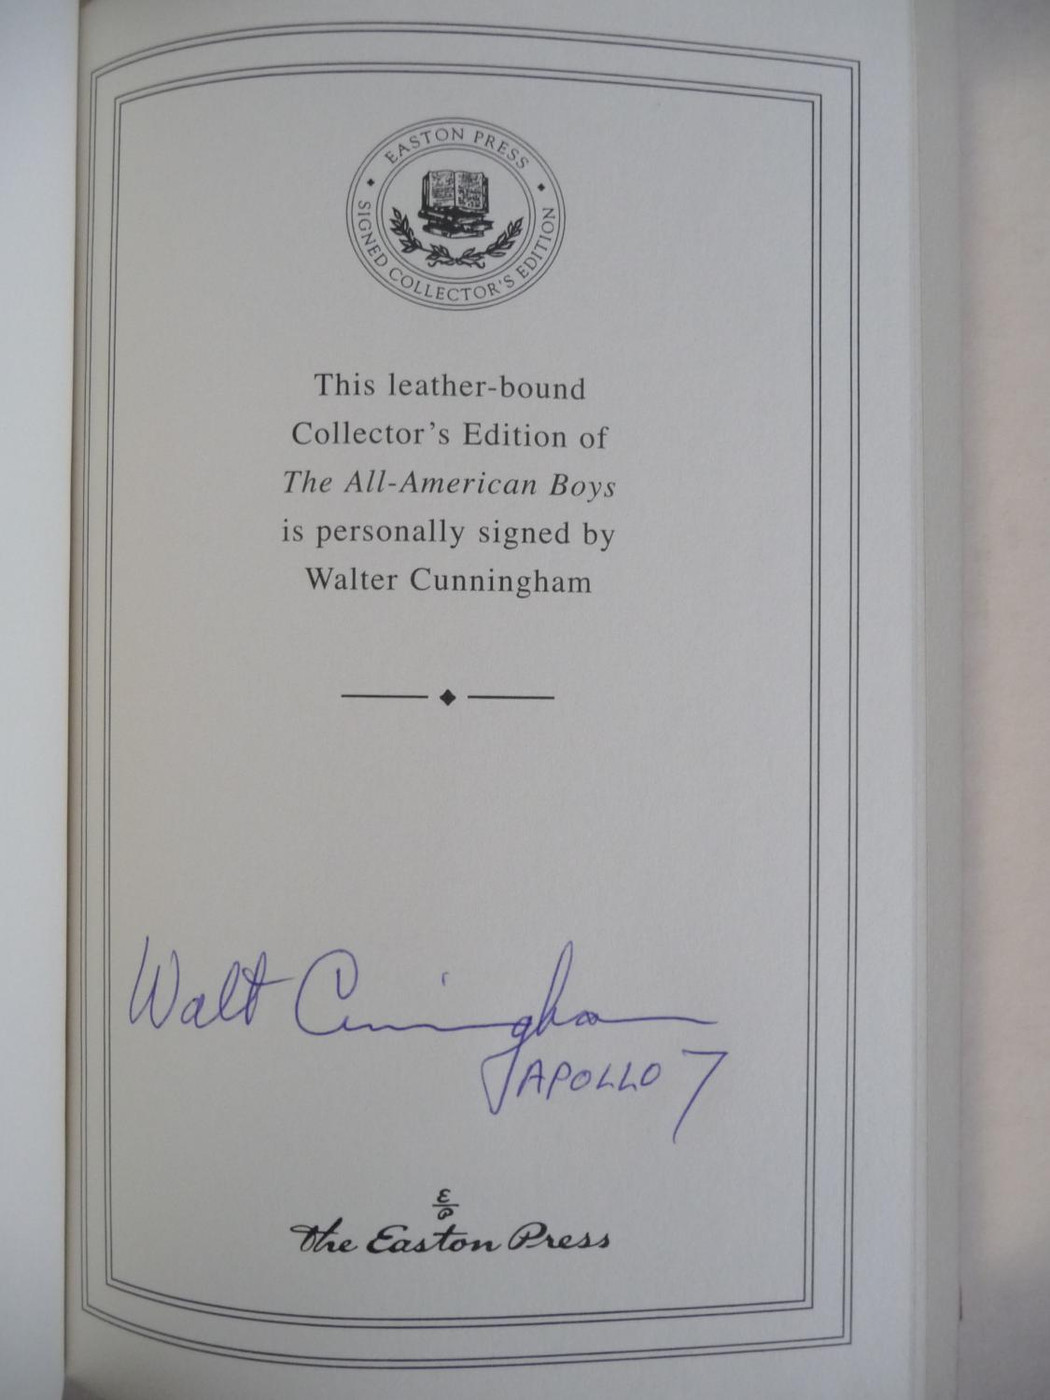 EASTON PRESS
SIGNED COLLECTOR'S EDITION
This leather-bound
Collector's Edition of
The All-American Boys
is personally signed by
Walter Cunningham
Walt Cunningham
APOLLO 7
E/P
The Easton Press